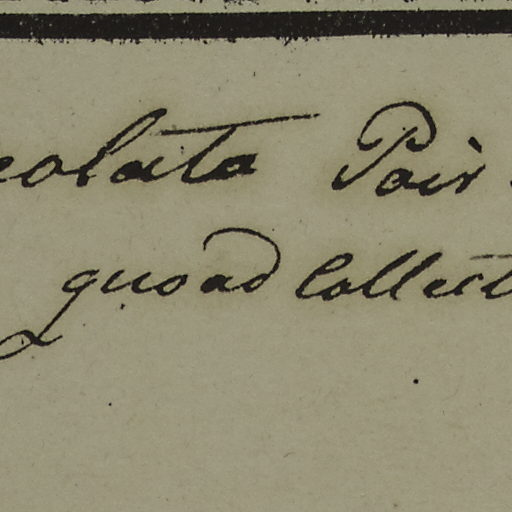 eolata Poir
quoad Collect